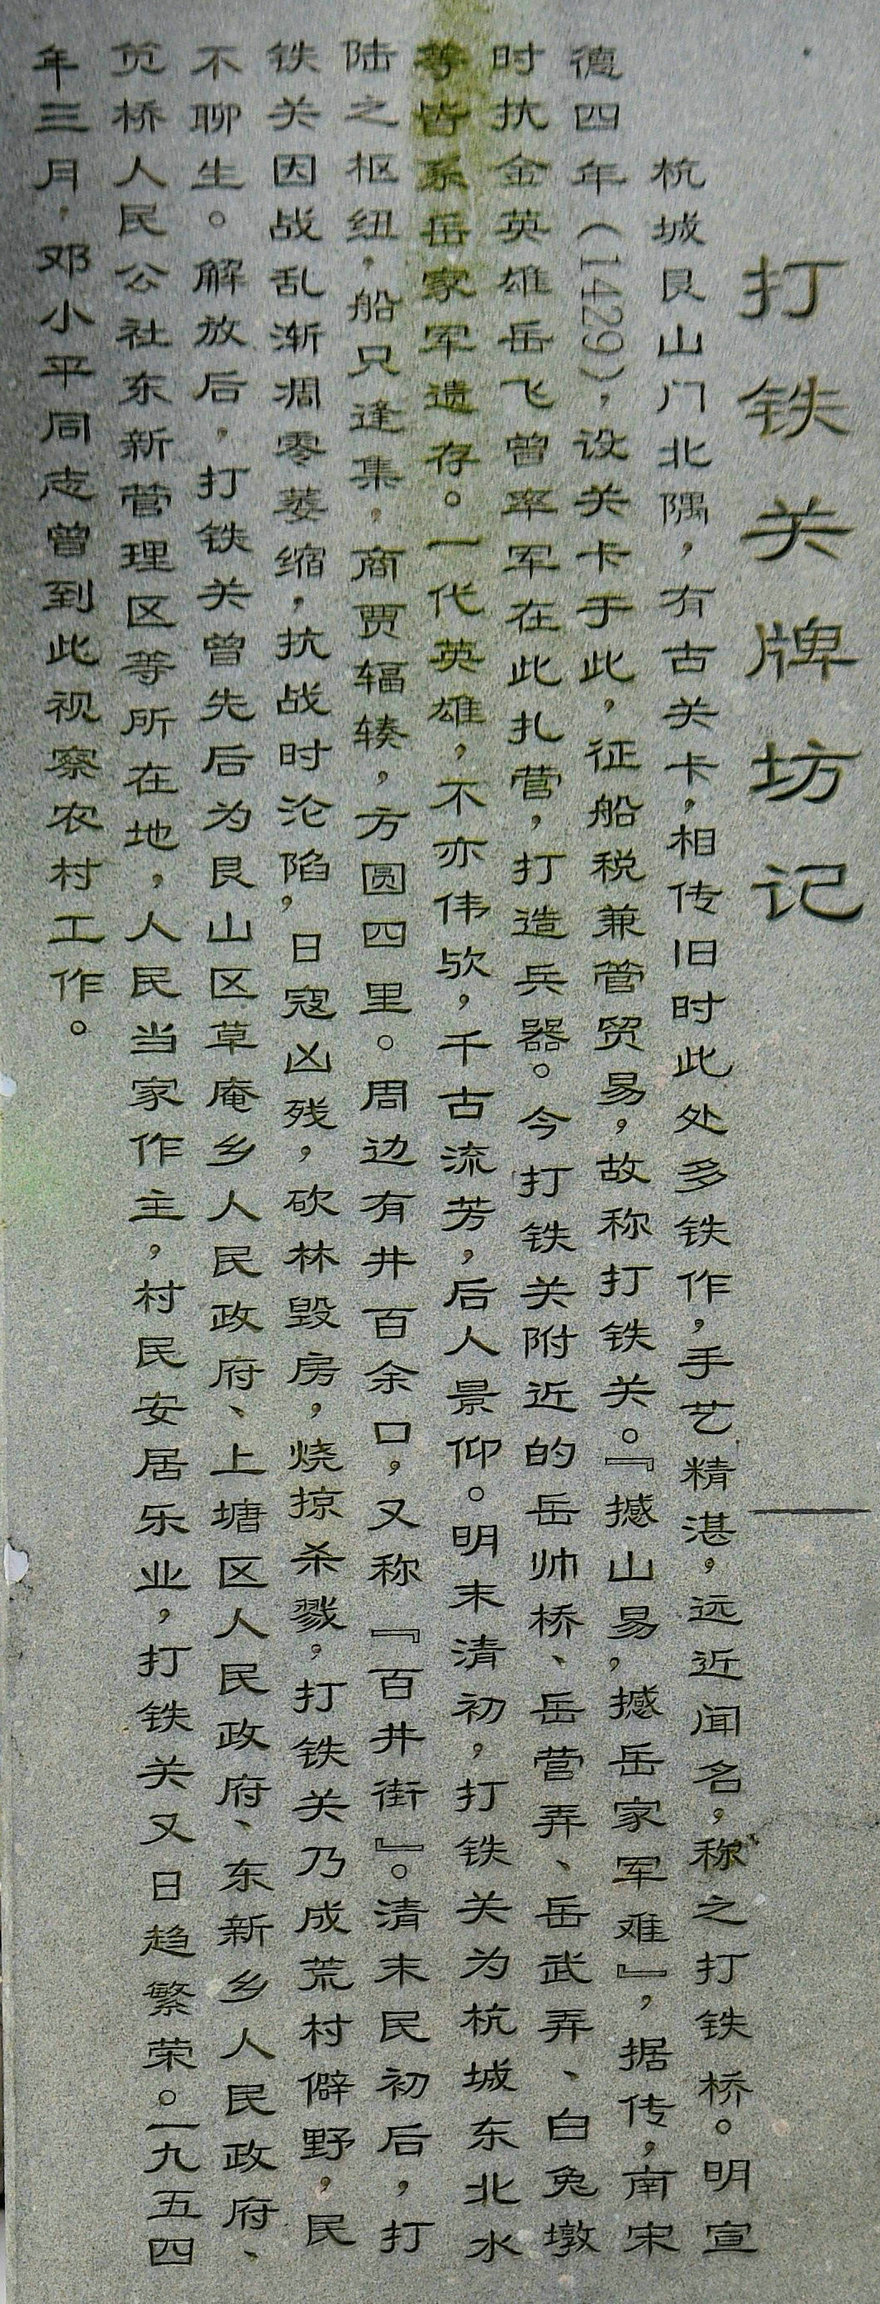 打铁关牌坊记
杭城艮山门北隅，有古关卡，相传旧时此处多铁作，手艺精湛，远近闻名，称之打铁桥。明宣
德四年（1429），设关卡于此，征船税兼管贸易，故称打铁关。『撼山易，撼岳家军难』，据传，南宋
时抗金英雄岳飞曾率军在此扎营，打造兵器。今打铁关附近的岳帅桥、岳营弄、岳武弄、白兔墩
等皆系岳家军遗存。一代英雄，不亦伟欤，千古流芳，后人景仰。明末清初，打铁关为杭城东北水
陆之枢纽，船只逢集，商贾辐辏，方圆四里。周边有井百余口，又称『百井街』。清末民初后，打
铁关因战乱渐凋零萎缩，抗战时沦陷，日寇凶残，砍林毁房，烧掠杀戮，打铁关乃成荒村僻野，民
不聊生。解放后，打铁关曾先后为艮山区草庵乡人民政府、上塘区人民政府、东新乡人民政府、
笕桥人民公社东新管理区等所在地，人民当家作主，村民安居乐业，打铁关又日趋繁荣。一九五四
年三月，邓小平同志曾到此视察农村工作。